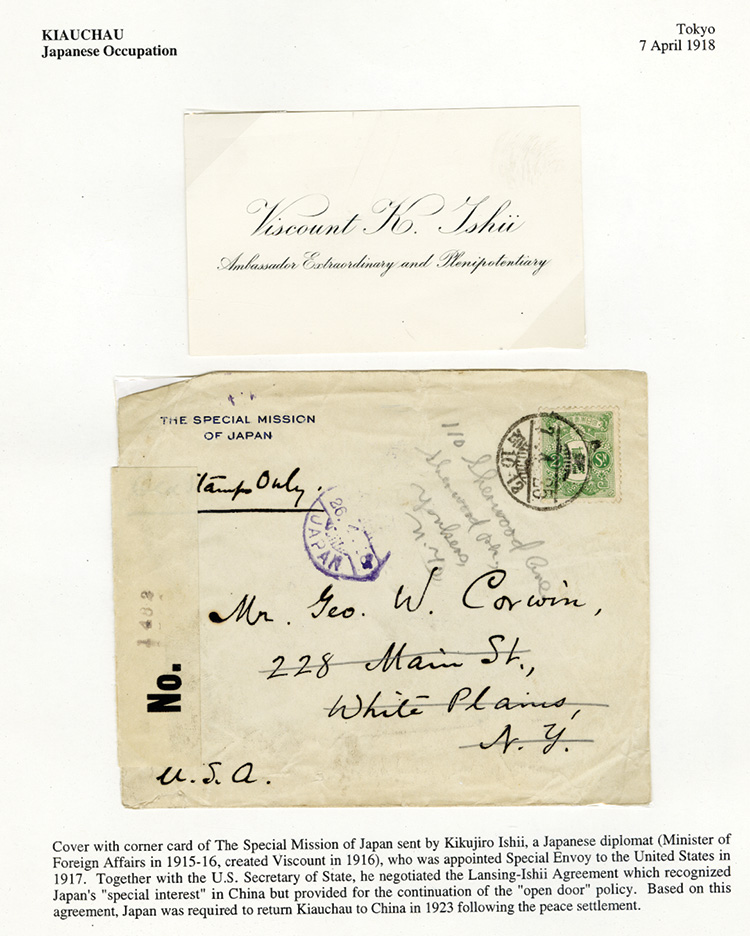 KIAUCHAU
Japanese Occupation
Tokyo
7 April 1918
Viscount K. Ishii
Ambassador Extraordinary and Plenipotentiary
THE SPECIAL MISSION
OF JAPAN
tamps Only.
26.
JAPAN
110 Sherwood Ave
Sherwood Pk,
Yonkers,
N.Y.
Mr. Geo. W. Corwin,
228 Main St.,
White Plains,
N. Y.
U. S. A.
No.
Cover with corner card of The Special Mission of Japan sent by Kikujiro Ishii, a Japanese diplomat (Minister of
Foreign Affairs in 1915-16, created Viscount in 1916), who was appointed Special Envoy to the United States in
1917. Together with the U.S. Secretary of State, he negotiated the Lansing-Ishii Agreement which recognized
Japan's "special interest" in China but provided for the continuation of the "open door" policy. Based on this
agreement, Japan was required to return Kiauchau to China in 1923 following the peace settlement.